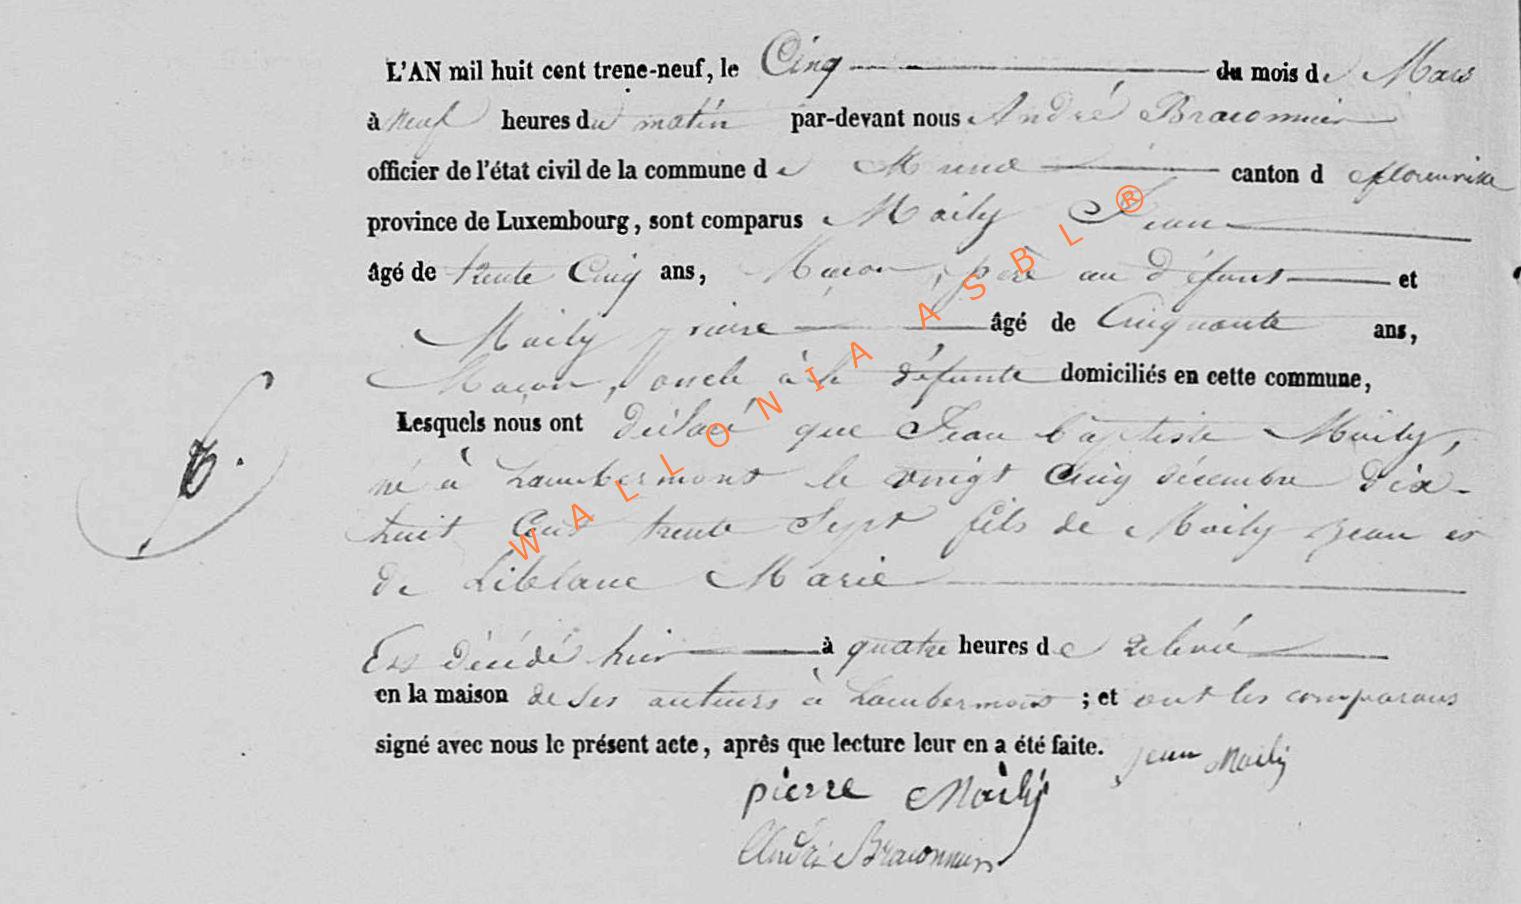 L'AN mil huit cent trene-neuf, le Cinq du mois de Mars
à neuf heures du matin par-devant nous André Braconnier
officier de l'état civil de la commune de Muno canton d florenville
province de Luxembourg, sont comparus Maily Jean
âgé de trente Cinq ans, Maçon, père au défunt et
Maily pierre âgé de Cinquante ans,
Maçon, oncle à le défunte domiciliés en cette commune,
Lesquels nous ont déclaré que Jean baptiste Maily,
né à Lambermont le vingt Cinq décembre dix-
huit Cent trente Sept fils de Maily Jean et
de Liblanc Marie
Est décédé hier à quatre heures de relevée
en la maison de ses auteurs à Lambermont ; et ont les comparans
signé avec nous le présent acte, après que lecture leur en a été faite. Jean Maily
pierre Maily
André Braconnier
WALLONIA ASBL ®